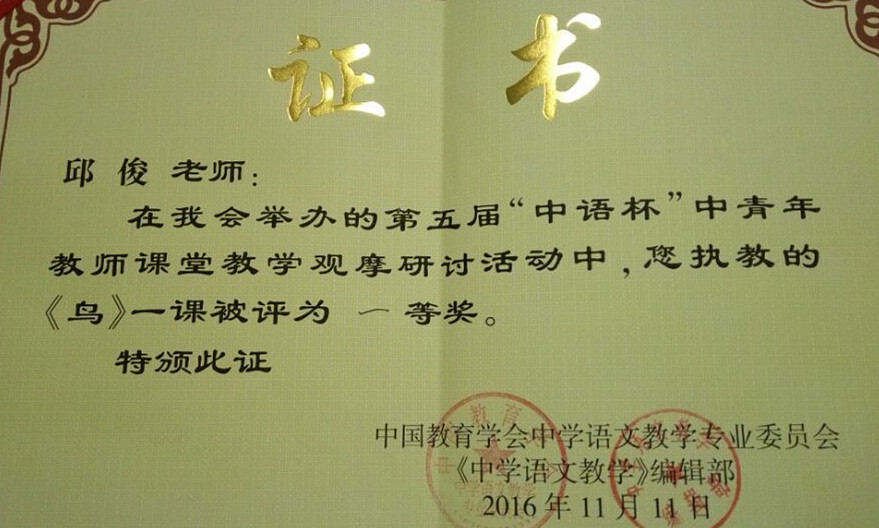 证书
邱俊老师：
在我会举办的第五届“中语杯”中青年
教师课堂教学观摩研讨活动中，您执教的
《鸟》一课被评为 一 等奖。
特颁此证
中国教育学会中学语文教学专业委员会
《中学语文教学》编辑部
2016年11月11日